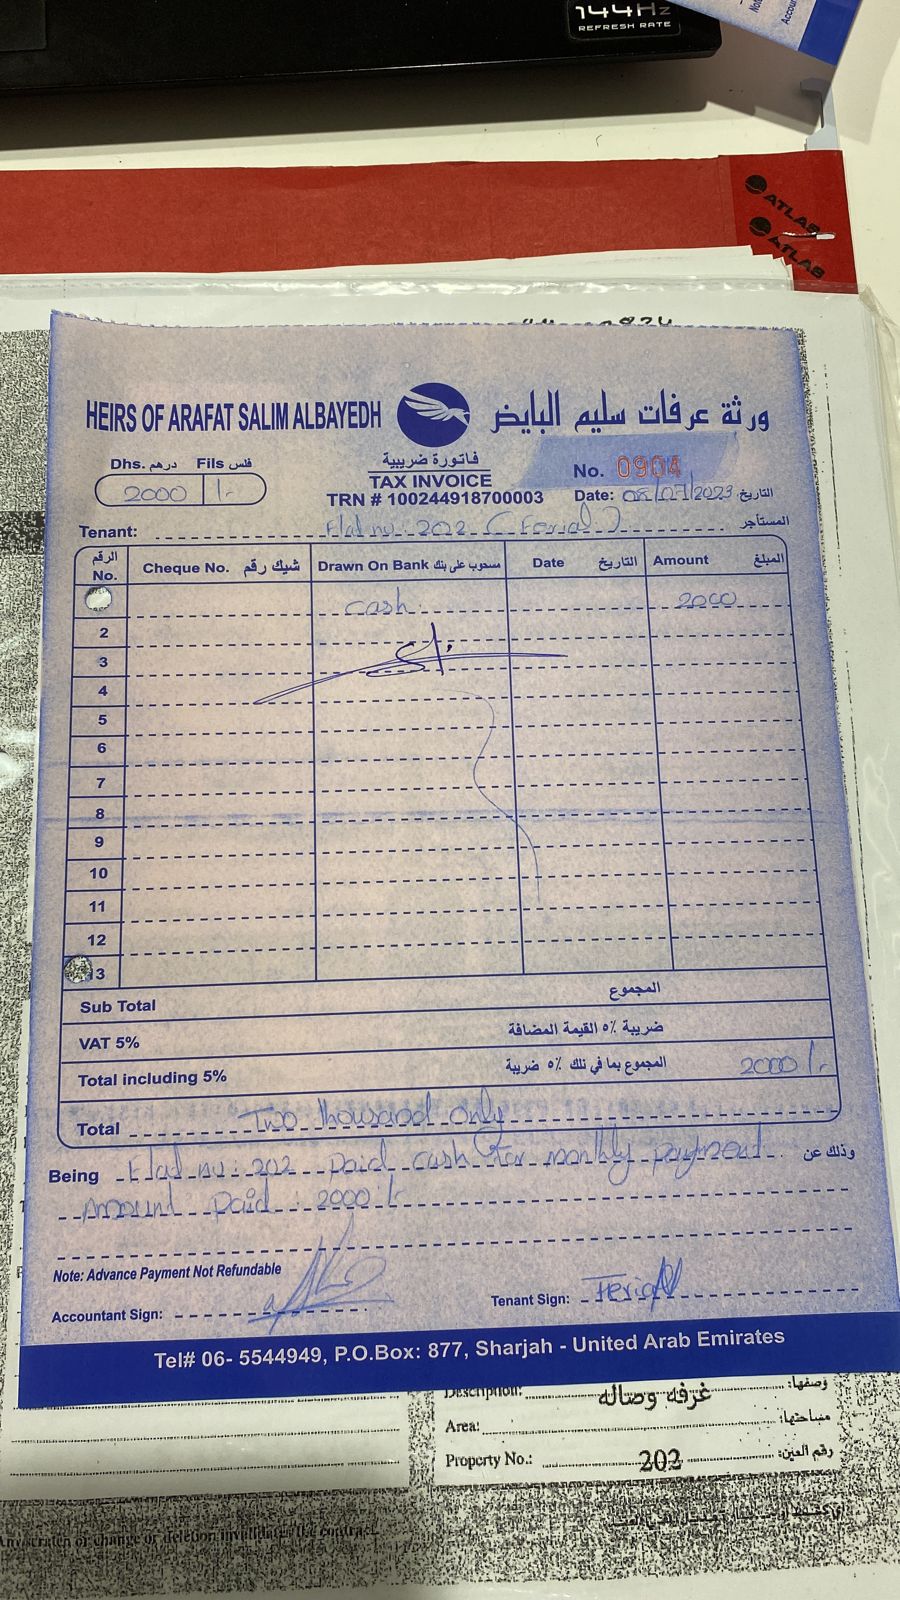 144Hz
REFRESH RATE
ATLAS
ATLAS
HEIRS OF ARAFAT SALIM ALBAYEDH
ورثة عرفات سليم البايض
Dhs. درهم Fils فلس
2000 /-
فاتورة ضريبية
TAX INVOICE
TRN # 100244918700003
No. 0904
Date: 08/07/2023 التاريخ
Tenant: Flat no: 202 (Ferial) المستأجر
الرقم No. Cheque No. شيك رقم Drawn On Bank مسحوب على بنك Date التاريخ Amount المبلغ
cash 2000
2
3
4
5
6
7
8
9
10
11
12
13
Sub Total المجموع
VAT 5% ضريبة ٥٪ القيمة المضافة
Total including 5% المجموع بما في تلك ٥٪ ضريبة 2000/-
Total Two thousand only
Being Flat no: 202 paid cash for monthly payment وذلك عن
Amount paid: 2000/-
Note: Advance Payment Not Refundable
Accountant Sign:
Tenant Sign: Ferial
Tel# 06- 5544949, P.O.Box: 877, Sharjah - United Arab Emirates
Description: غرفه وصاله وصفها:
Area: مساحتها:
Property No.: 202 رقم العين:
change or deletion invalidates the contract